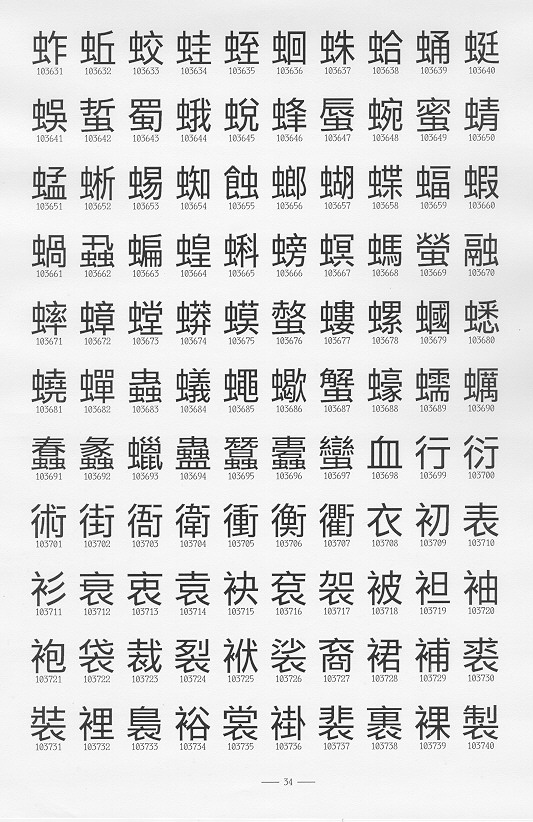 蚱 蚯 蛟 蛙 蛭 蛔 蛛 蛤 蛹 蜓
103631 103632 103633 103634 103635 103636 103637 103638 103639 103640
蜈 蜇 蜀 蛾 蛻 蜂 蜃 蜿 蜜 蜻
103641 103642 103643 103644 103645 103646 103647 103648 103649 103650
蜢 蜥 蜴 蜘 蝕 螂 蝴 蝶 蝠 蝦
103651 103652 103653 103654 103655 103656 103657 103658 103659 103660
蝸 蝨 蝙 蝗 蝌 螃 螟 螞 螢 融
103661 103662 103663 103664 103665 103666 103667 103668 103669 103670
蟀 蟑 螳 蟒 蟆 螫 螻 螺 蟈 蟋
103671 103672 103673 103674 103675 103676 103677 103678 103679 103680
蟯 蟬 蟲 蟻 蠅 蠍 蟹 蠔 蠕 蠣
103681 103682 103683 103684 103685 103686 103687 103688 103689 103690
蠢 蠡 蠟 蠱 蠶 蠹 蠻 血 行 衍
103691 103692 103693 103694 103695 103696 103697 103698 103699 103700
術 街 衙 衛 衝 衡 衢 衣 初 表
103701 103702 103703 103704 103705 103706 103707 103708 103709 103710
衫 衰 衷 袁 袂 袞 袈 被 袒 袖
103711 103712 103713 103714 103715 103716 103717 103718 103719 103720
袍 袋 裁 裂 袱 裟 裔 裙 補 裘
103721 103722 103723 103724 103725 103726 103727 103728 103729 103730
裝 裡 裊 裕 裳 褂 裴 裹 裸 製
103731 103732 103733 103734 103735 103736 103737 103738 103739 103740
34